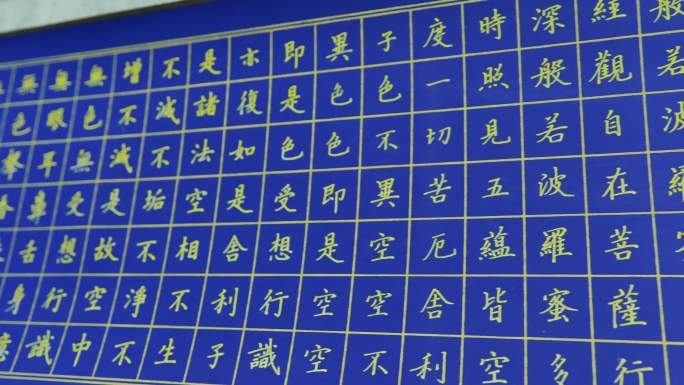 般若波羅
經觀自在菩薩行
深般若波羅蜜多
時照見五蘊皆空
度一切苦厄舍利
子色不異空空不
異色色即是空空
即是色受想行識
亦復如是舍利子
是諸法空相不生
不滅不垢不淨不
增不減是故空中
無色無受想行識
無眼耳鼻舌身意
無色聲香